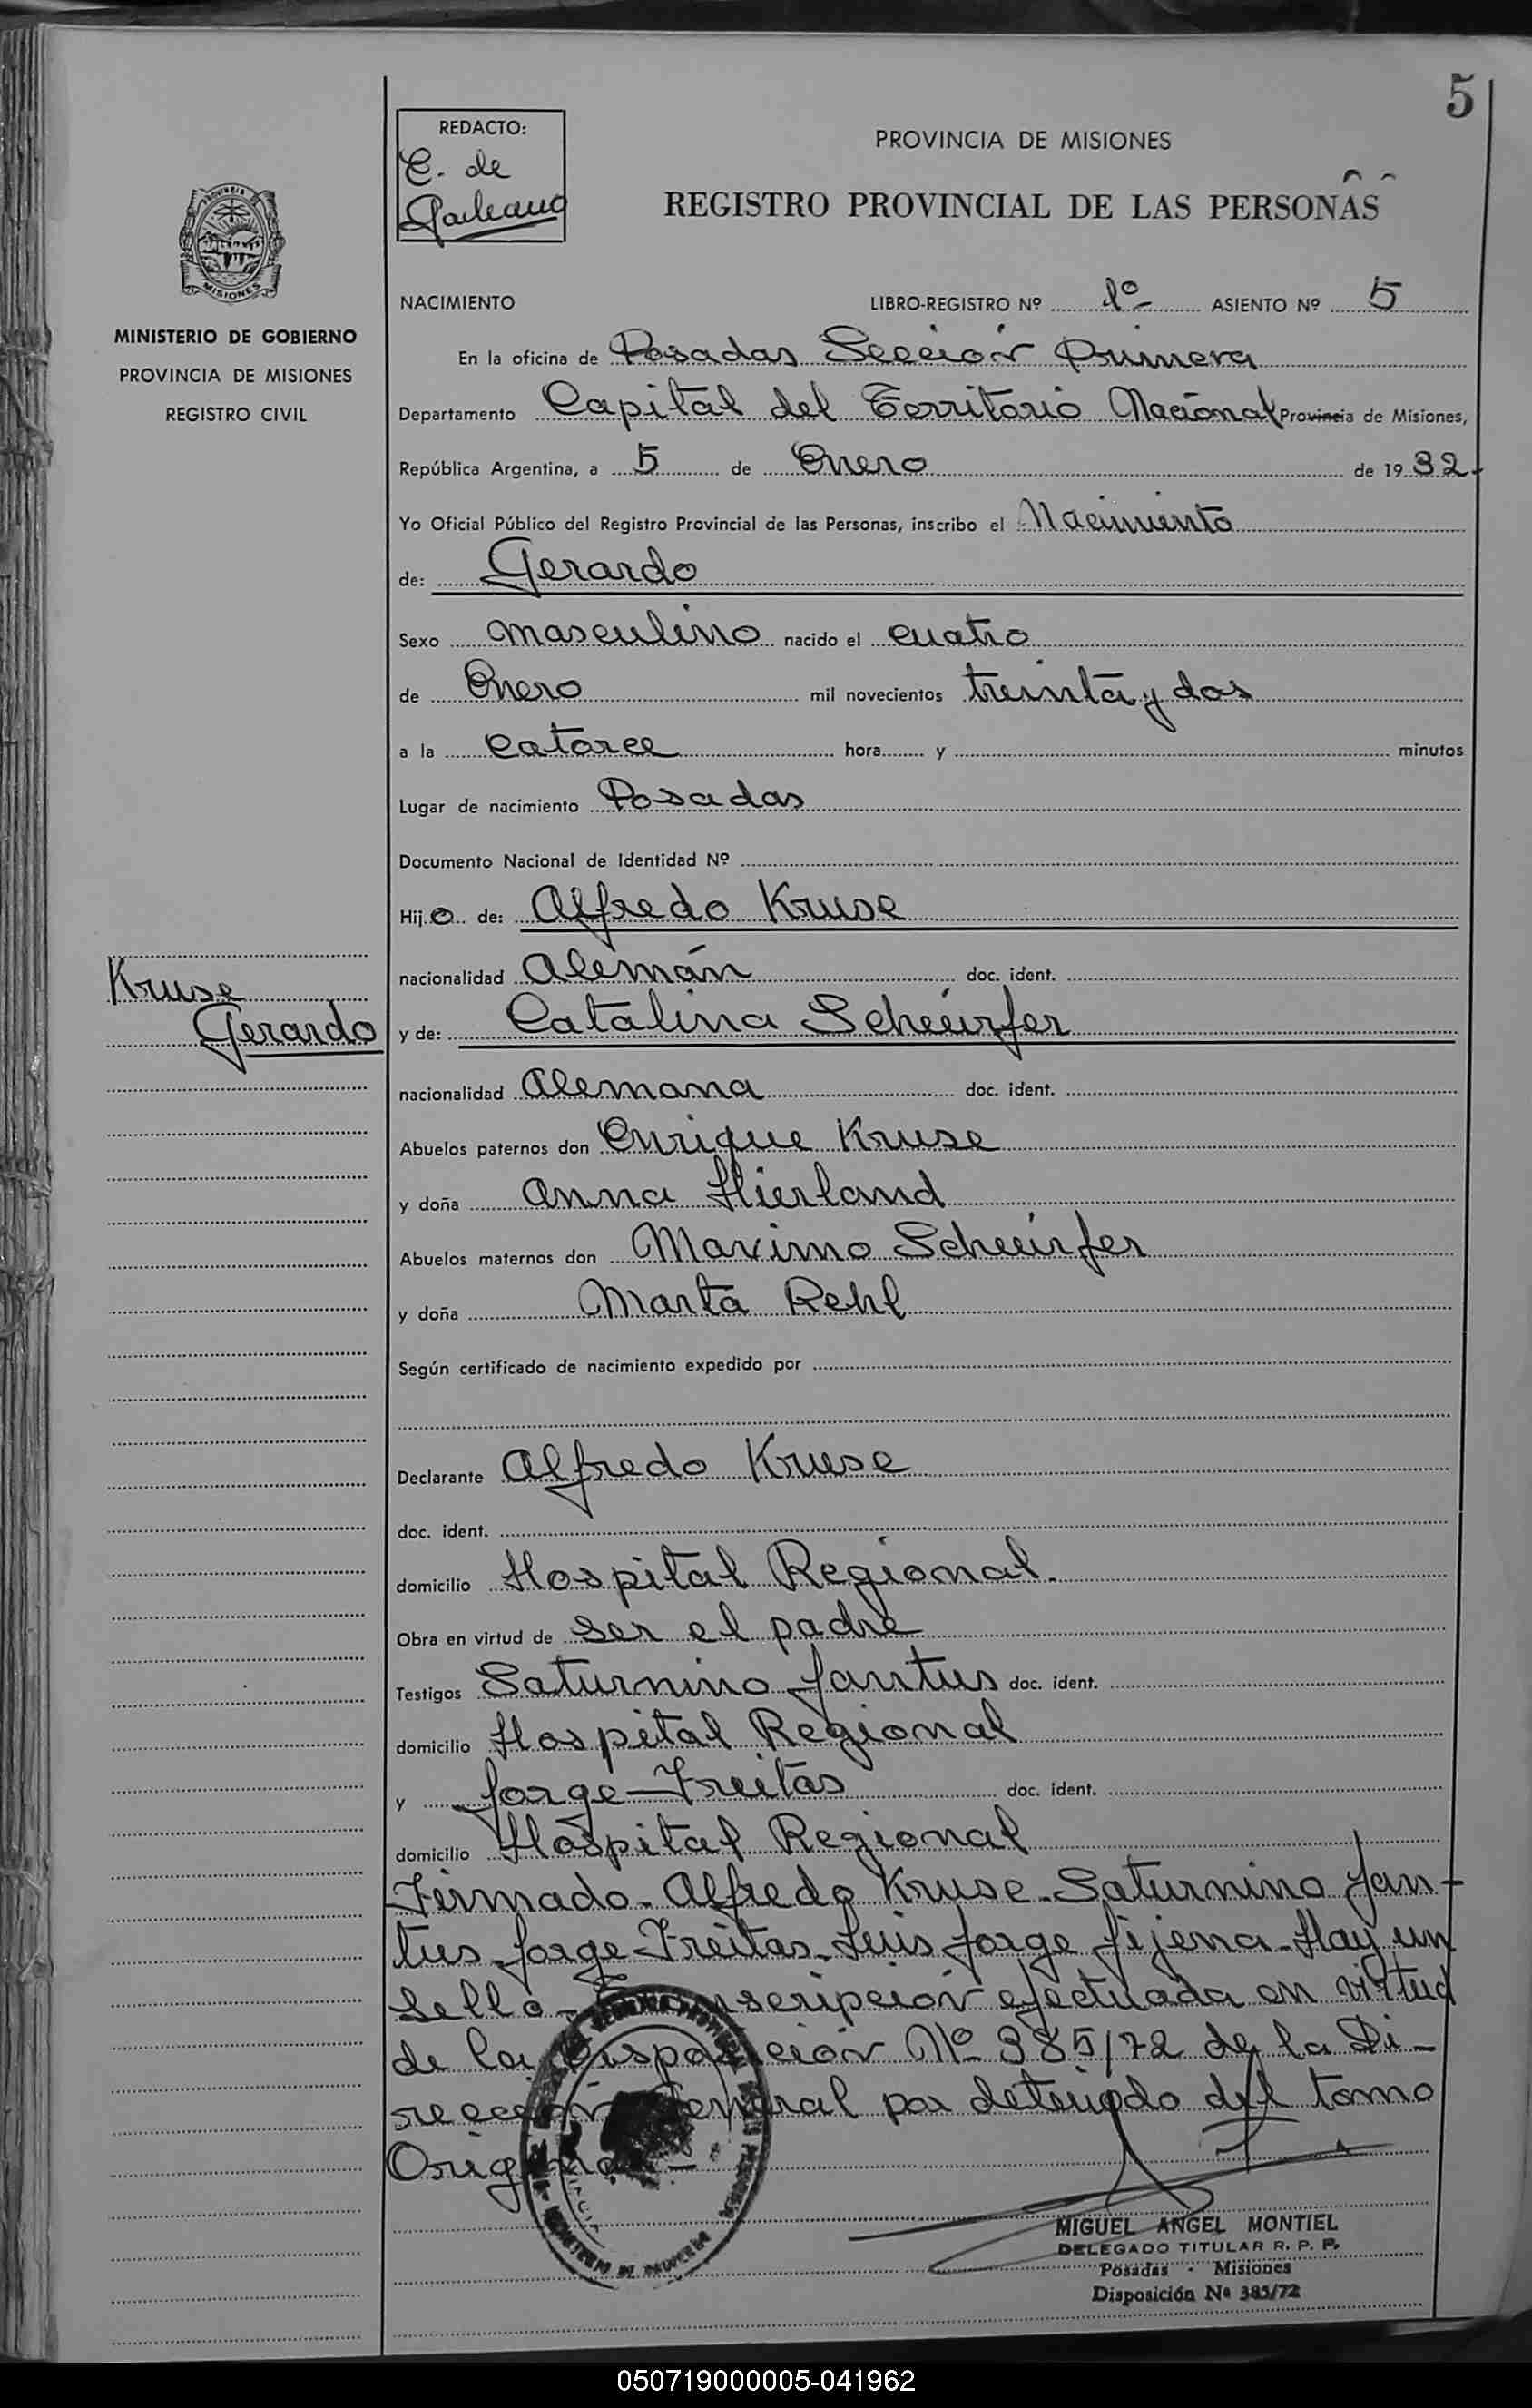 5
REDACTO:
C. de
Galeano
PROVINCIA DE MISIONES
REGISTRO PROVINCIAL DE LAS PERSONAS
MISIONES
MINISTERIO DE GOBIERNO
PROVINCIA DE MISIONES
REGISTRO CIVIL
NACIMIENTO LIBRO-REGISTRO Nº 1º ASIENTO Nº 5
En la oficina de Posadas Sección Primera
Departamento Capital del Territorio Nacional Provincia de Misiones,
República Argentina, a 5 de Enero de 1932.
Yo Oficial Público del Registro Provincial de las Personas, inscribo el Nacimiento
de: Gerardo
Sexo masculino nacido el cuatro
de Enero mil novecientos treinta y dos
a la catorce hora y minutos
Lugar de nacimiento Posadas
Documento Nacional de Identidad Nº
Hijo de: Alfredo Kruse
nacionalidad Alemán doc. ident.
Kruse
Gerardo
y de: Catalina Scheürfer
nacionalidad Alemana doc. ident.
Abuelos paternos don Enrique Kruse
y doña Anna Hierland
Abuelos maternos don Maximo Scheürfer
y doña Marta Rehl
Según certificado de nacimiento expedido por
Declarante Alfredo Kruse
doc. ident.
domicilio Hospital Regional.
Obra en virtud de ser el padre
Testigos Saturnino Jantus doc. ident.
domicilio Hospital Regional
y Jorge Freitas doc. ident.
domicilio Hospital Regional
Firmado. Alfredo Kruse. Saturnino Jan-
tus. Jorge Freitas. Luis Jorge Jijena. Hay un
sello. inscripción efectuada en virtud
de la Disposición Nº 385/72 de la Di-
rección General por deterioro del tomo
Original
MIGUEL ANGEL MONTIEL
DELEGADO TITULAR R. P. P.
Posadas - Misiones
Disposición Nº 385/72
050719000005-041962